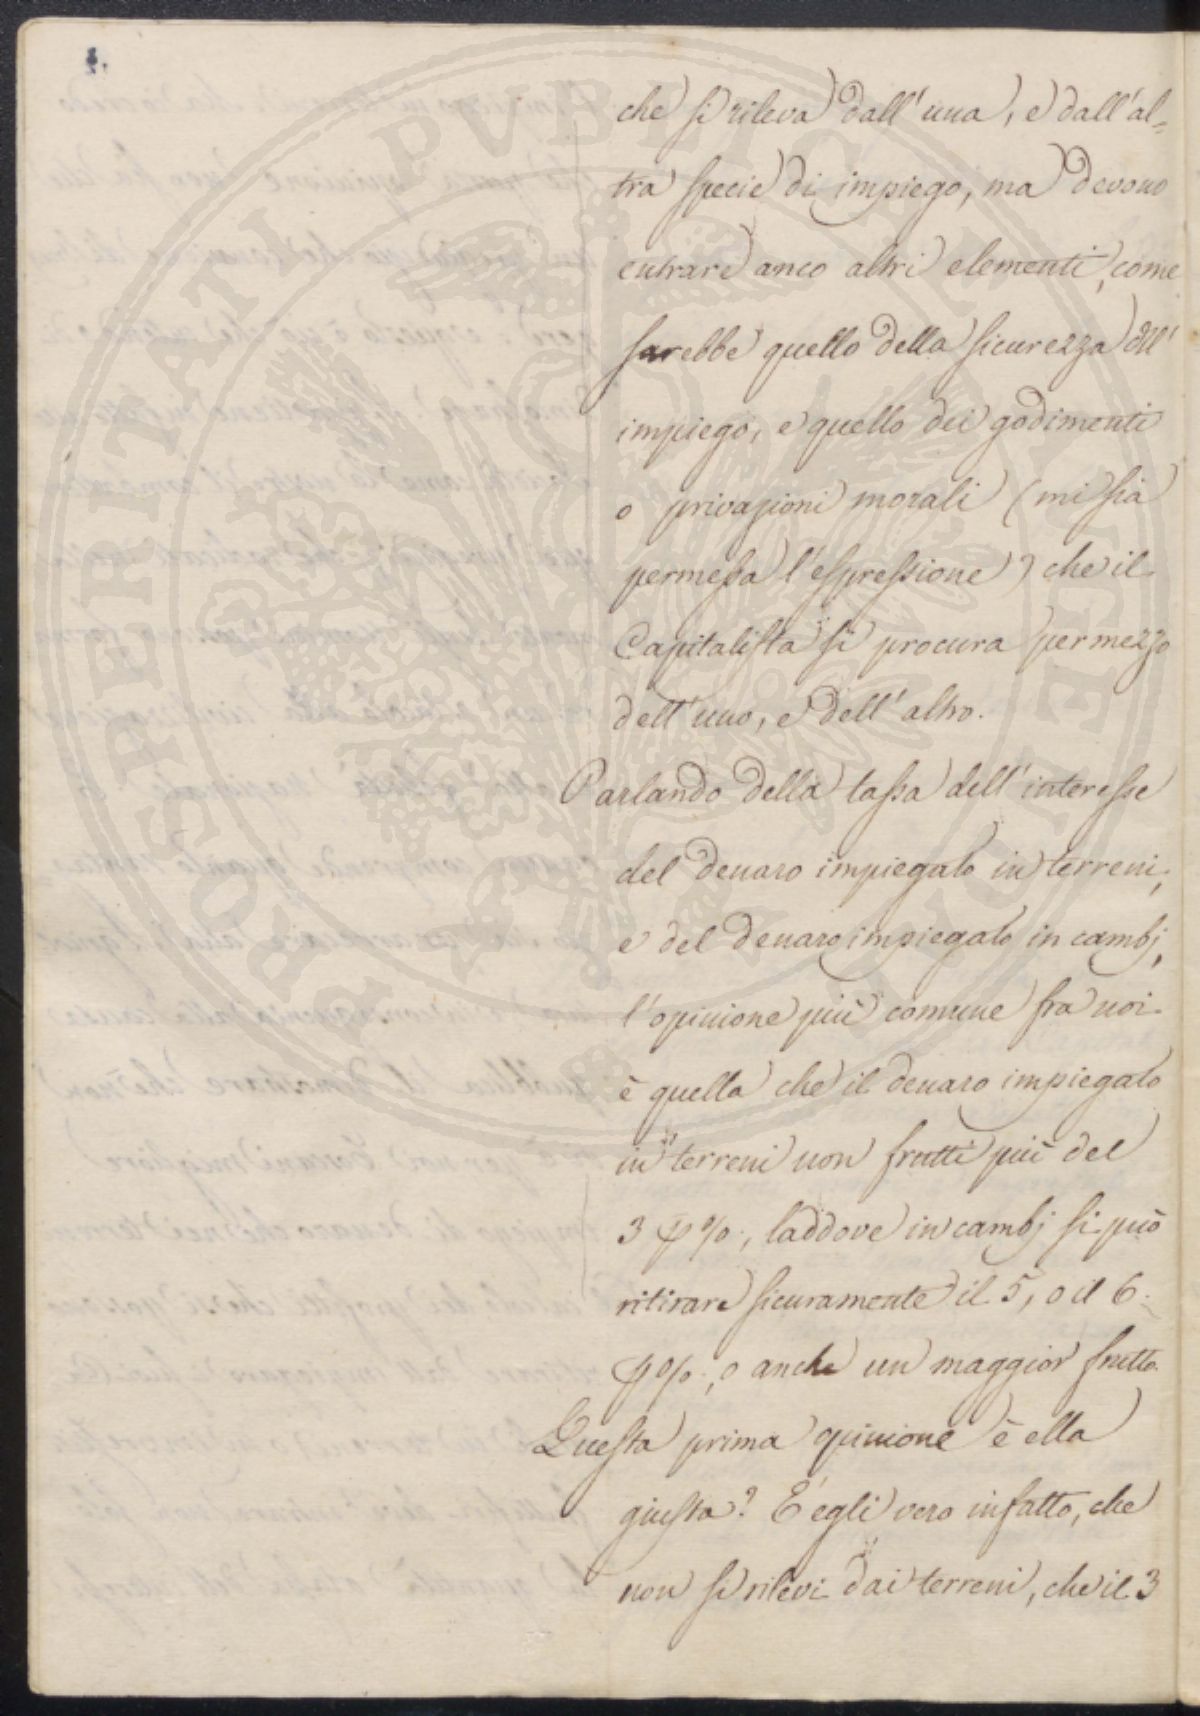 che si rileva dall'una, e dall'al=
tra specie di impiego, ma devono
entrare anco altri elementi, come
sarebbe quello della sicurezza dell'
impiego, e quello dei godimenti
o privazioni morali (mi sia
permessa l'espressione) che il
Capitalista si procura per mezzo
dell'uno, e dell'altro.
Parlando della tassa dell'interesse
del denaro impiegato in terreni,
e del denaro impiegato in cambj,
l'opinione più comune fra noi
è quella che il denaro impiegato
in terreni non frutti più del
3 p%, laddove in cambj si può
ritirare sicuramente il 5, o il 6.
p%, o anche un maggior frutto.
Questa prima opinione è ella
giusta? E' egli vero infatto, che
non si rilevi dai terreni, che il 3
PROSPERITATI PVBLICAE AVGENDAE